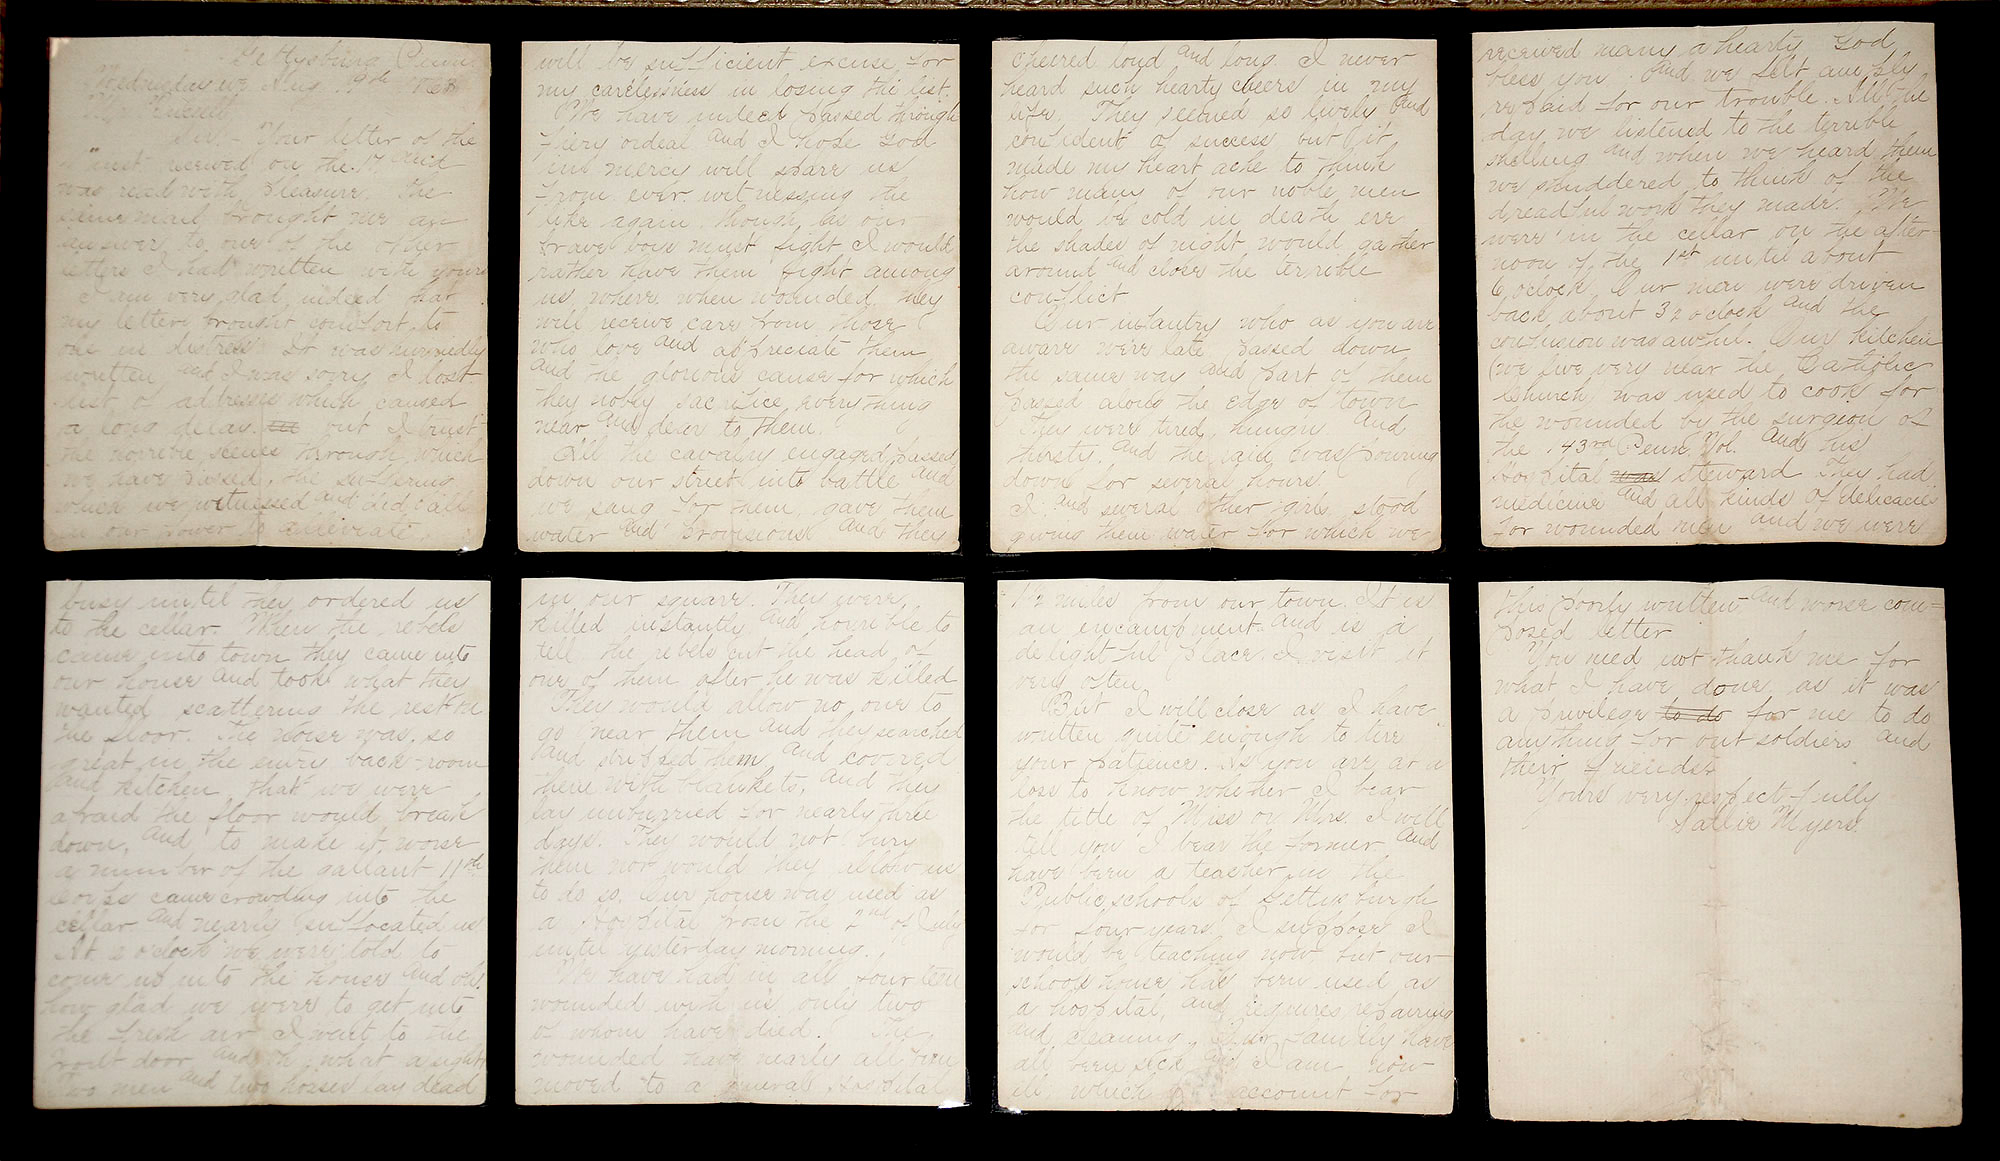 Gettysburg, Penn.
Wednesday eve Aug. 19th 1863
Sir, - Your letter of the
inst. received on the 17 and
was read with pleasure. The
same mail brought me an
answer to one of the other
letters I had written with yours
I am very glad indeed that
my letter brought comfort to
one in distress. It was hurriedly
written and I was sorry I lost
list of addresses which caused
a long delay. but I trust
the horrible scenes through which
we have passed, the suffering
which we witnessed and did all
in our power to alleviate,
will be sufficient excuse for
my carelessness in losing the list.
We have indeed passed through
fiery ordeal and I hope God
in mercy will spare us
from ever witnessing the
like again, though, as our
brave boys must fight I would
rather have them fight among
us, where when wounded they
will receive care from those
who love and appreciate them
and the glorious cause for which
they nobly sacrifice everything
near and dear to them.
All the cavalry engaged passed
down our street into battle and
we sang for them, gave them
water and provisions and they
cheered loud and long. I never
heard such hearty cheers in my
life. They seemed so lively and
confident of success but it
made my heart ache to think
how many of our noble men
would be cold in death ere
the shades of night would gather
around and close the terrible
conflict
Our infantry who as you are
aware were late passed down
the same way and part of them
passed along the edge of town
They were tired, hungry and
thirsty, and the rain was pouring
down for several hours.
I and several other girls stood
giving them water for which we
received many a hearty God
bless you and we felt amply
repaid for our trouble. All the
day we listened to the terrible
shelling and when we heard them
we shuddered to think of the
dreadful work they made. We
were in the cellar on the after-
noon of the 1st until about
6 oclock. Our men were driven
back about 3½ oclock and the
confusion was awful. Our kitchen
(we live very near the Catholic
Church) was used to cook for
the wounded by the surgeon of
the 143rd Penn. Vol. and his
Hospital was steward They had
medicine and all kinds of delicacies
for wounded men and we were
busy until they ordered us
to the cellar. When the rebels
came into town they came into
our house and took what they
wanted scattering the rest on
the floor. The noise was so
great in the entry back-room
and kitchen that we were
afraid the floor would break
down, and to make it worse
a number of the gallant 11th
Corps came crowding into the
cellar and nearly suffocated us
At 6 oclock we were told to
come up into the house and oh!
how glad we were to get into
the fresh air I went to the
front door and oh, what a sight
two men and two horses lay dead
in our square. They were
killed instantly and horrible to
tell the rebels cut the head of
one of them after he was killed
They would allow no one to
go near them and they searched
and stripped them and covered
them with blankets, and they
lay unburried for nearly three
days. They would not bury
them nor would they allow us
to do so. Our house was used as
a Hospital from the 2nd of July
until yesterday morning.
We have had in all fourteen
wounded with us only two
of whom have died. The
wounded have nearly all been
moved to a general Hospital
1½ miles from our town. It is
an encampment and is a
delightful place. I visit it
very often
But I will close as I have
written quite enough to tire
your patience. As you are at a
loss to know whether I bear
the title of Miss or Mrs. I will
tell you I bear the former and
have been a teacher in the
Public schools of Gettysburgh
for four years. I suppose I
would be teaching now but our
school house has been used as
a hospital, and requires repairing
and cleaning. Our family have
all been sick and I am now
ill, which account for
this poorly written and worse com-
posed letter
You need not thank me for
what I have done as it was
a privilege to do for me to do
anything for out soldiers and
their friends
Yours very respectfully
Sallie Myers.